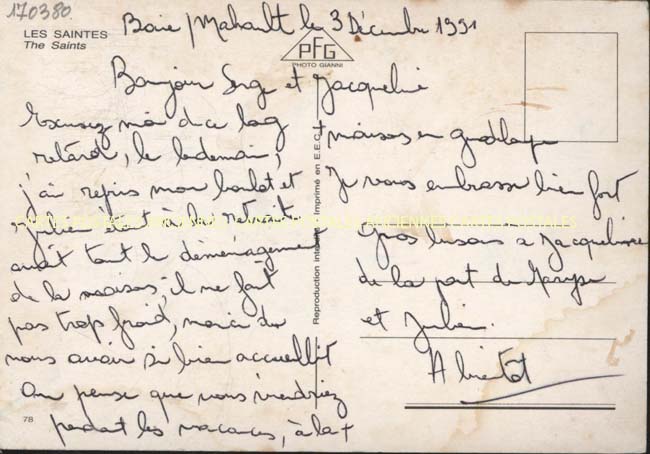 170380.
LES SAINTES
The Saints
Baie Mahault le 3 Décembre 1991
PFG
PHOTO GIANNI
Bonjour Serge et Jacqueline
Excusez moi de ce long
retard, le lendemain,
j'ai repris mon boulot et
Julien est à la retraite
avait tout le déménagement
de la maison, il ne fait
pas trop froid, merci de
nous avoir si bien accueillit
On pense que vous viendriez
pendant les vacances, à la +
+ maison en guadeloupe
Je vous embrasse bien fort
gros bisous a Jacqueline
de la part de Maryse
et Julien.
A bientôt
Reproduction interdite - Imprimé en E.E.C.
78